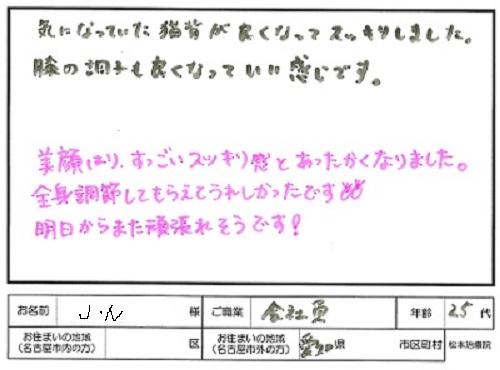 気になっていた猫背が良くなってスッキリしました。
膝の調子も良くなっていい感じです。
美顔はり、すっごいスッキリ感とあったかくなりました。
全身調節してもらえてうれしかったです
明日からまた頑張れそうです!
お名前 J・N 様 ご職業 会社員 年齢 25 代
お住まいの地域(名古屋市内の方) 区 お住まいの地域(名古屋市外の方) 愛知県 市区町村 松本治療院